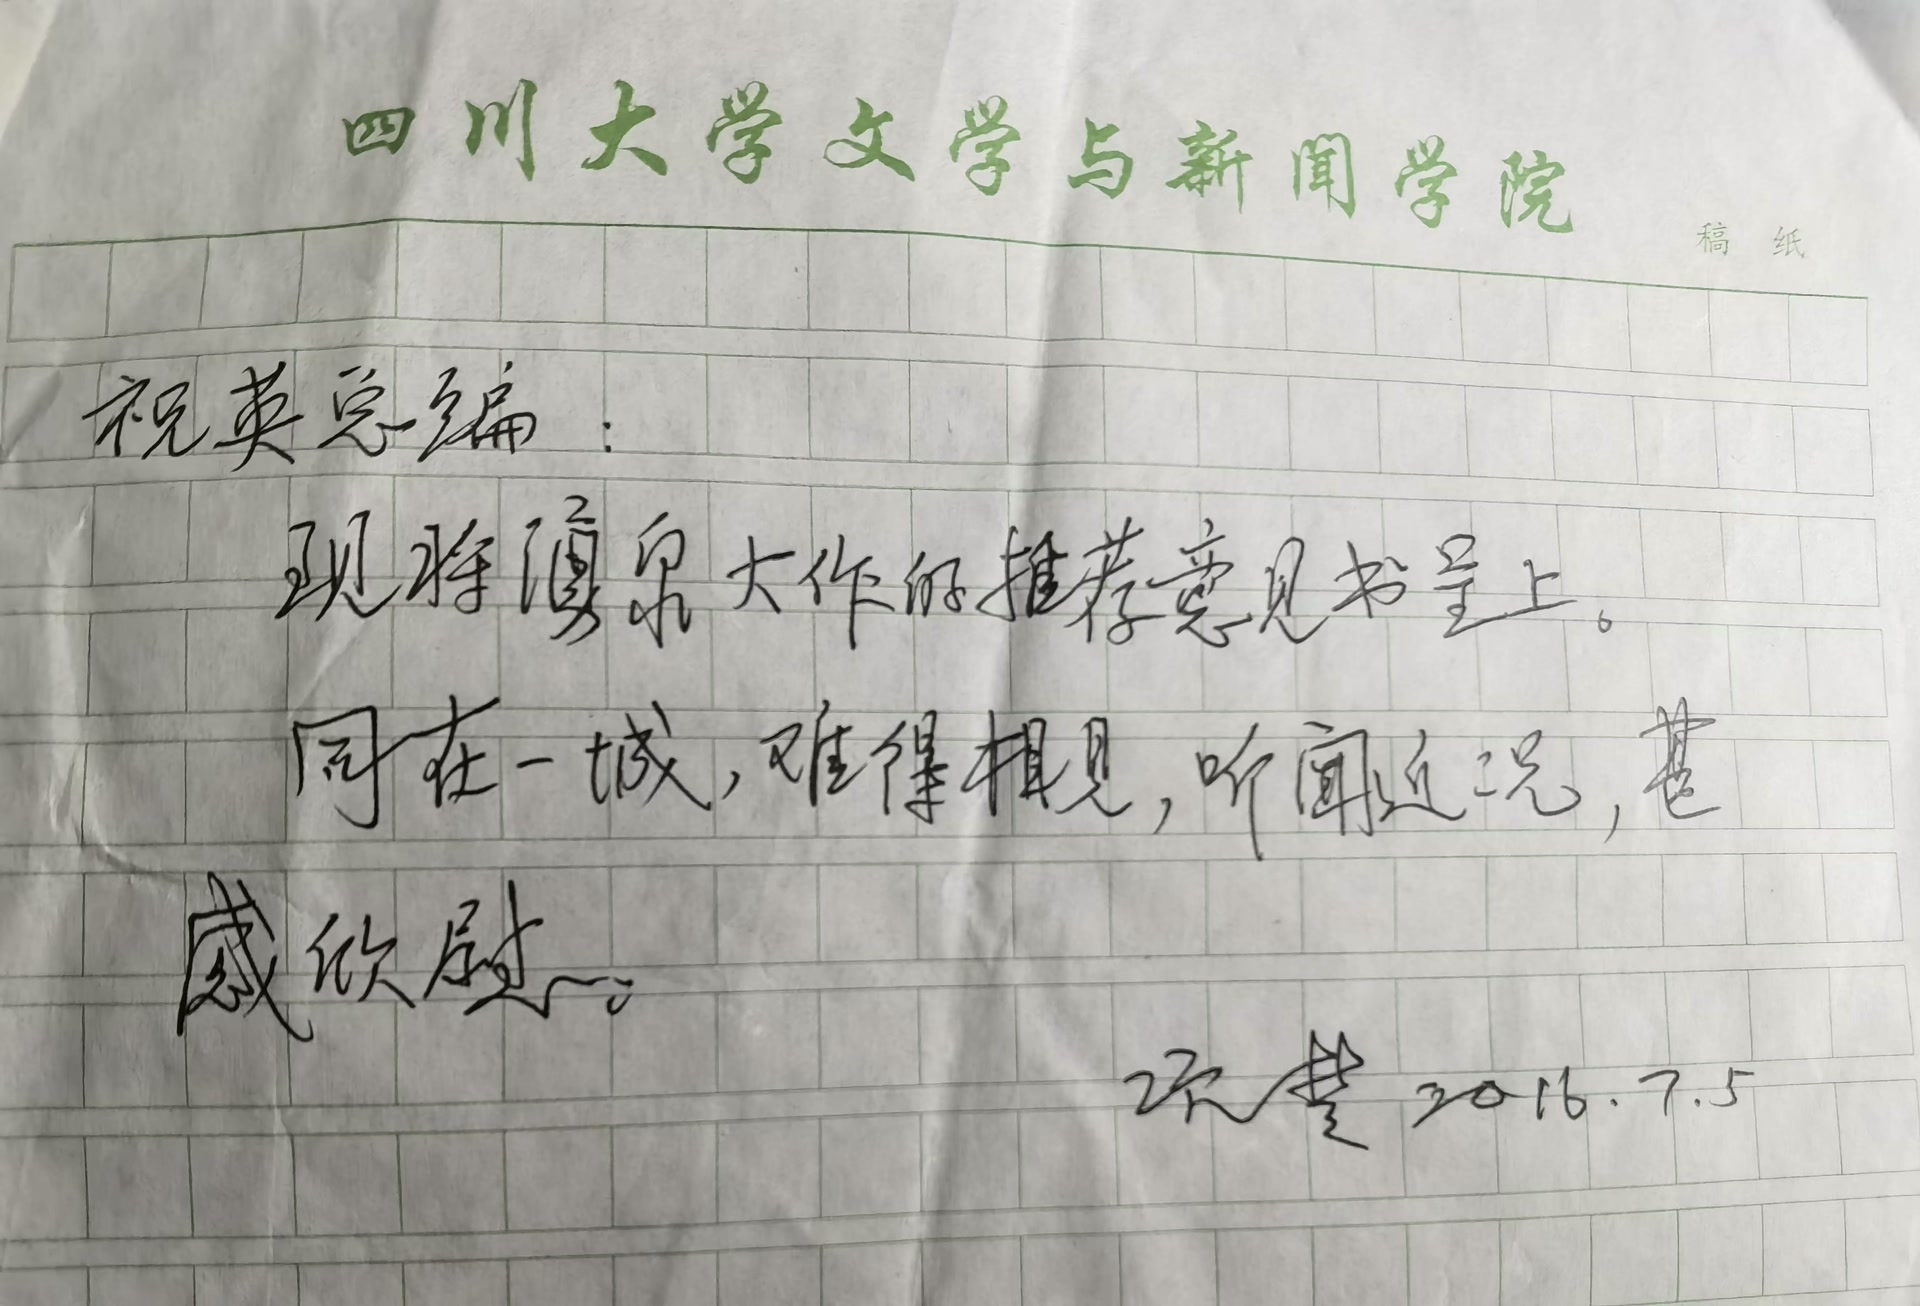 四川大学文学与新闻学院
稿 纸
祝英总编：
现将泉大作的推荐意见书呈上。
同在一城，难得相见，听闻近况，甚
感欣慰。
项楚 2016.7.5